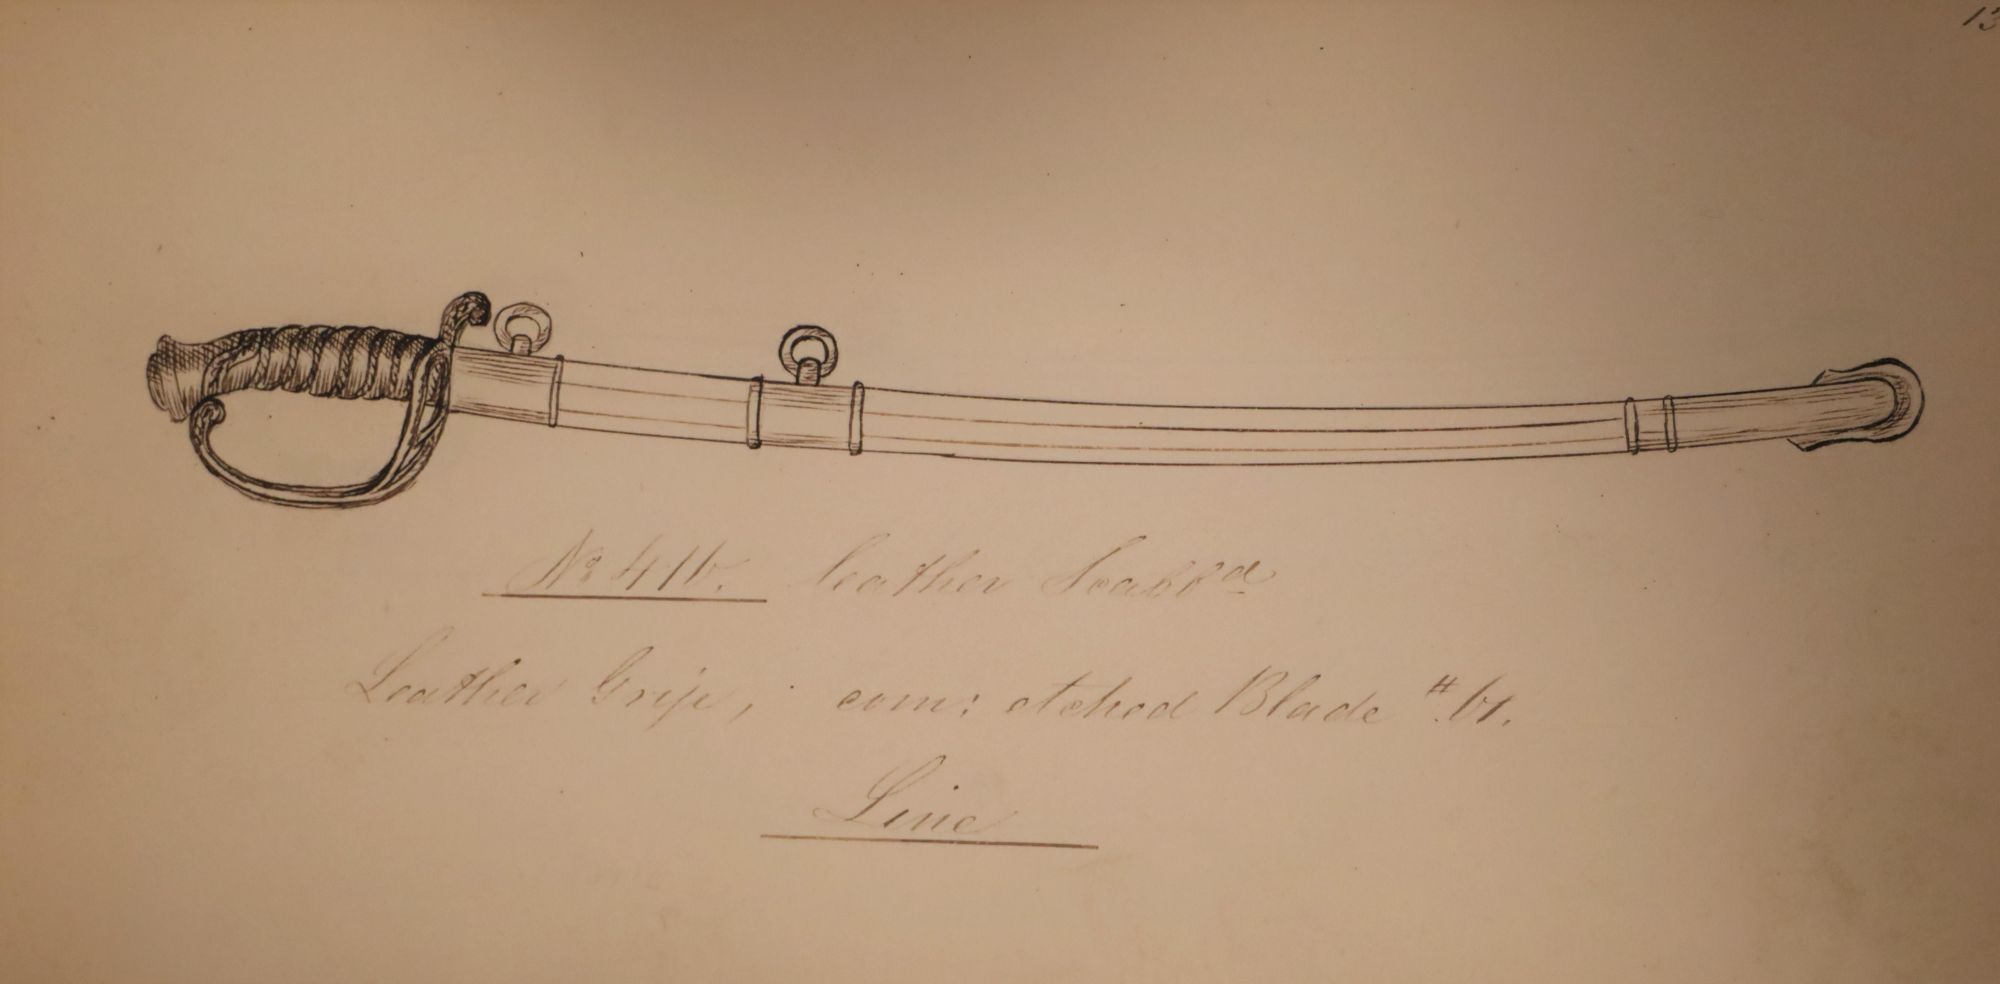 13
No 41b. Leather Scabbd
Leather Grip; com: etched Blade
Line